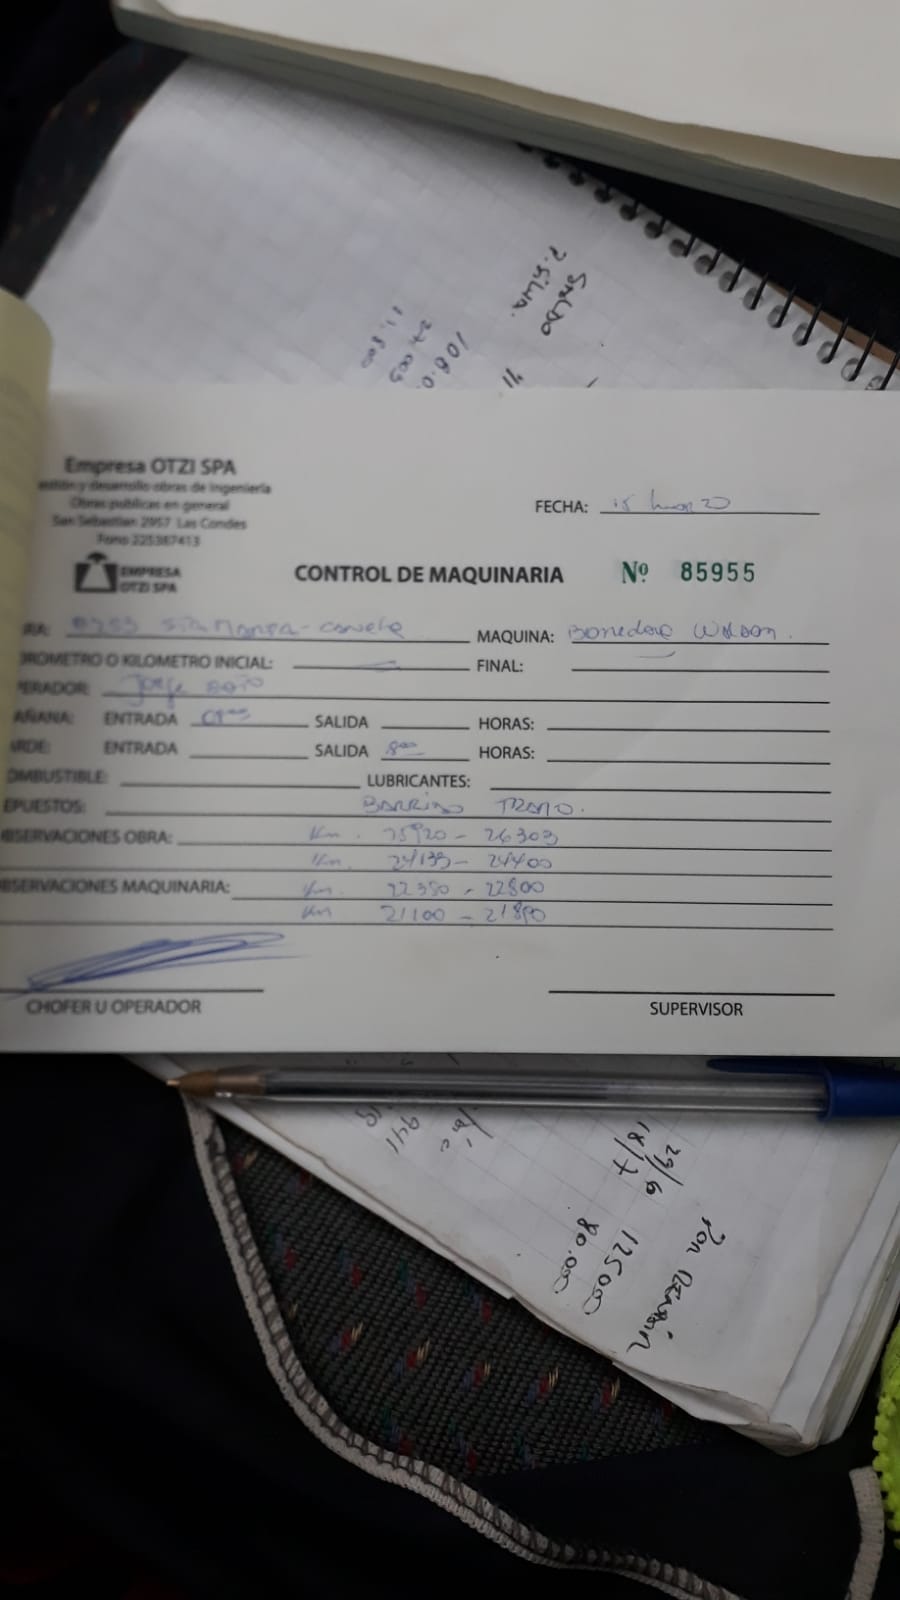 SALDO
P. SILVA.
11
108.0
27 000
11.500
Empresa OTZI SPA
estión y desarrollo obras de Ingeniería
Obras publicas en general
San Sebastian 2957 Las Condes
Fono 225387413
EMPRESA
OTZI SPA
FECHA: 15
CONTROL DE MAQUINARIA Nº 85955
RA: MAQUINA: Barredora Wilson.
OROMETRO O KILOMETRO INICIAL: FINAL:
PERADOR: Jorge Soto
AÑANA: ENTRADA SALIDA HORAS:
ARDE: ENTRADA SALIDA 800 HORAS:
OMBUSTIBLE: LUBRICANTES:
EPUESTOS: BARRIDO TRAMO.
BSERVACIONES OBRA: Km. 25920 - 26303
Km. 24133 - 24400
BSERVACIONES MAQUINARIA: Km. 22350 - 22800
Km 21100 - 21890
CHOFER U OPERADOR SUPERVISOR
941
29/6 125000
18/7 80.000